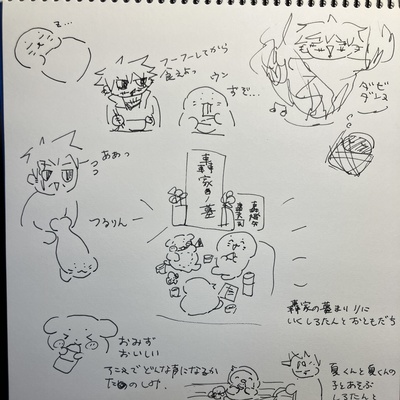 z...
フーフーしてから
食えよっ
ウン
すぞ...
ダビダビ
ダンス
ああっ
つるりんー
轟家ノ墓
轟家の墓まいりに
いくしろたんとおともだち
おみず
おいしい
どんな声になるか
たのしみ.
夏くんと夏くんの
子とあそぶ
しろたんと